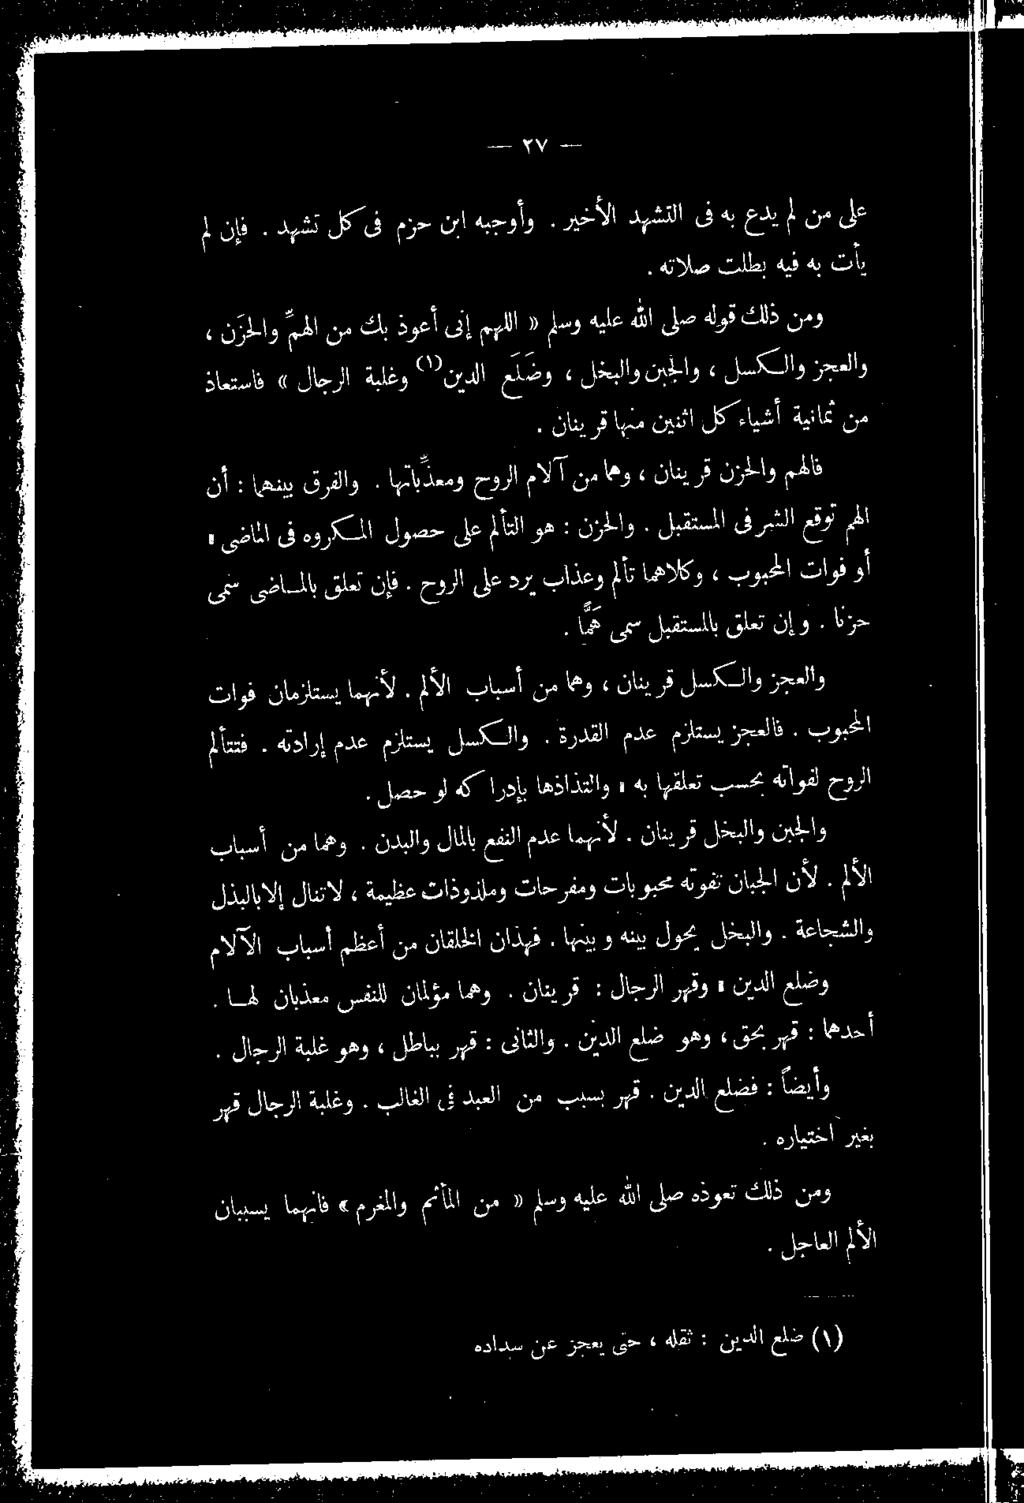 — ٢٧ —
على من لم يدع به فى التشهد الأخير . وأوجبه ابن حزم فى كل تشهد . فإن لم
يأت به فيه بطلت صلاته .
ومن ذلك قوله صلى الله عليه وسلم « اللهم إنى أعوذ بك من الهمِّ والحَزَن ،
والعجز والكسل ، والجبن والبخل ، وضَلَع الدين (١) وغلبة الرجال » فاستعاذ
من ثمانية أشياء كل اثنين منها قرينان .
فالهم والحزن قرينان ، وهما من آلام الروح ومعذِّباتها . والفرق بينهما : أن
الهم توقع الشر فى المستقبل . والحزن : هو التألم على حصول المكروه فى الماضى ،
أو فوات المحبوب ، وكلاهما تألم وعذاب يرد على الروح . فإن تعلق بالماضى سمى
حزنا . وإن تعلق بالمستقبل سمى هَمًّا .
والعجز والكسل قرينان ، وهما من أسباب الألم . لأنهما يستلزمان فوات
المحبوب . فالعجز يستلزم عدم القدرة . والكسل يستلزم عدم إرادته . فتتألم
الروح لفواته بحسب تعلقها به ، والتذاذها بإدراكه لو حصل .
والجبن والبخل قرينان . لأنهما عدم النفع بالمال والبدن . وهما من أسباب
الألم . لأن الجبان تفوته محبوبات ومفرحات وملذوذات عظيمة ، لا تنال إلا بالبذل
والشجاعة . والبخل يحول بينه وبينها . فهذان الخلقان من أعظم أسباب الآلام
وضلع الدين ، وقهر الرجال : قرينان . وهما مؤلمان للنفس معذبان لها .
أحدهما : قهر بحق ، وهو ضلع الدين . والثانى : قهر بباطل ، وهو غلبة الرجال .
وأيضاً : فضلع الدين . قهر بسبب من العبد فى الغالب . وغلبة الرجال قهر
بغير اختياره .
ومن ذلك تعوذه صلى الله عليه وسلم « من المأثم والمغرم » فانهما يسببان
الألم العاجل .
(١) ضلع الدين : ثقله ، حتى يعجز عن سداده